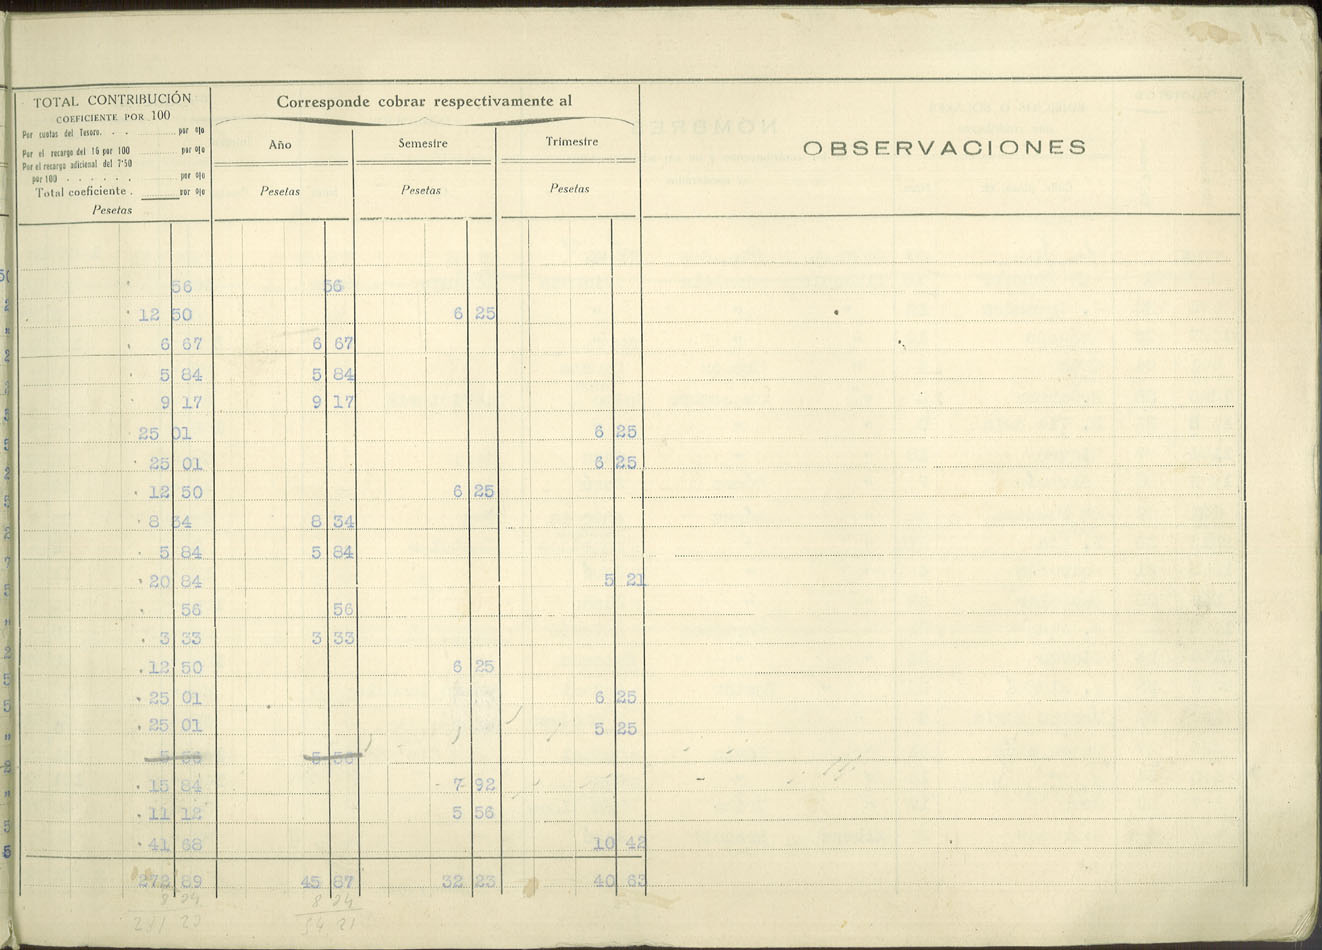 TOTAL CONTRIBUCIÓN
COEFICIENTE POR 100
Por cuotas del Tesoro. . . por o|o
Por el recargo del 16 por 100 por o|o
Por el recargo adicional del 7'50
por 100 . . . . . . por o|o
Total coeficiente . por o|o
Pesetas
Corresponde cobrar respectivamente al
Año Semestre Trimestre
Pesetas Pesetas Pesetas
OBSERVACIONES
56 56
12 50 6 25
6 67 6 67
5 84 5 84
9 17 9 17
25 01 6 25
25 01 6 25
12 50 6 25
8 34 8 34
5 84 5 84
20 84 5 21
56 56
3 33 3 33
12 50 6 25
25 01 6 25
25 01 5 25
5 56 5 56
15 84 7 92
11 12 5 56
41 68 10 42
272 89 45 87 32 23 40 63
8 24 8 24
54 21